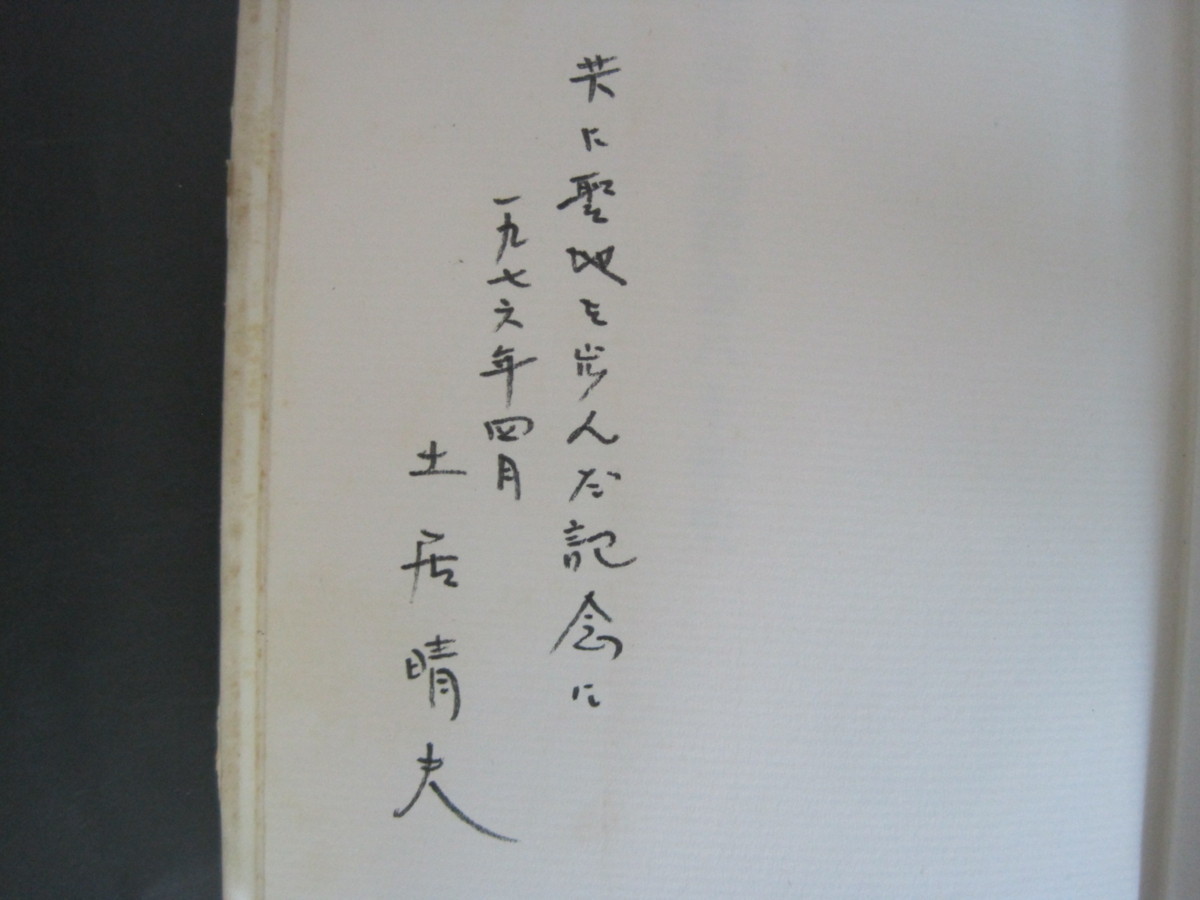 共に聖地を歩んだ記念に
一九七六年四月
土居晴夫